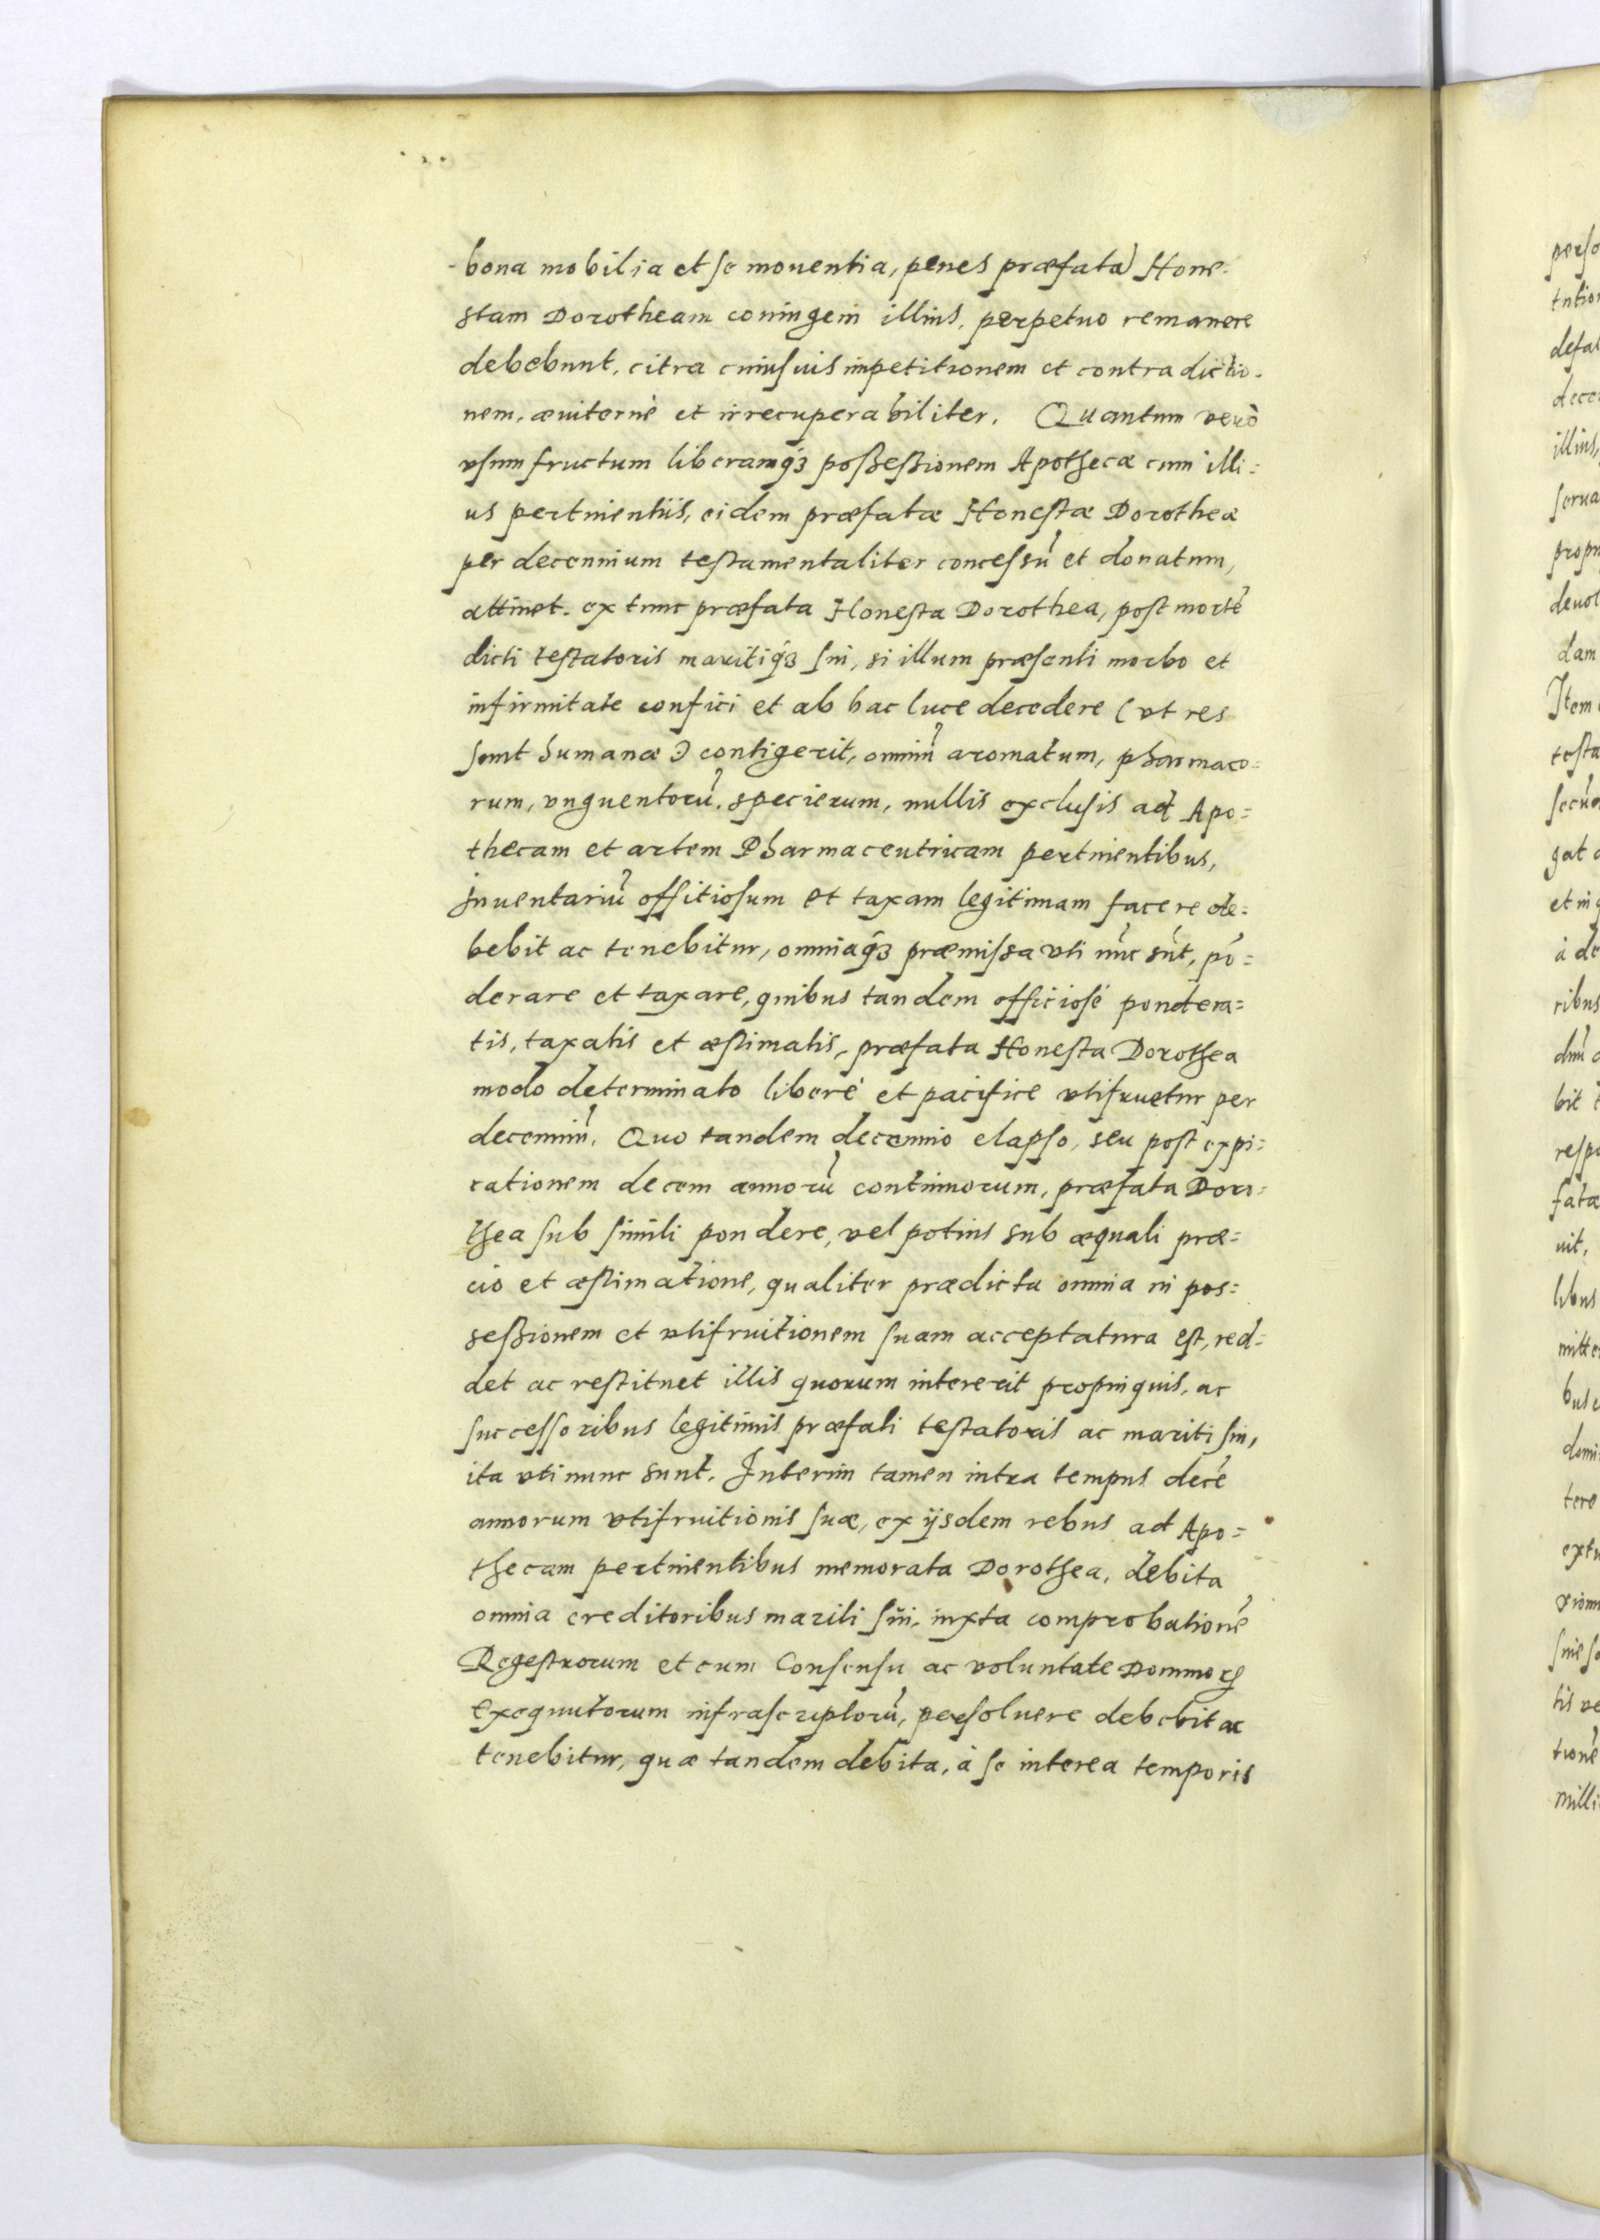 bona mobilia et se mouentia, penes præfatā Hone-
stam Dorotheam coniugem illius, perpetuo remanere
debebunt, citra cuiusuis impetitionem et contradictio-
nem, æuiternè et irrecuperabiliter. Quantum verò
vsumfructum liberamqʒ poßeßionem Apothecæ cum illi=
us pertinentiis, eidem præfatæ Honestæ Dorotheæ
per decennium testamentaliter concessū et donatum,
attinet. ex tunc præfata Honesta Dorothea, post mortē
dicti testatoris maritiqʒ sui, si illum præsenti morbo et
infirmitate confici et ab hac luce decedere (vt res
sunt humanæ) contigerit, omniū aromatum, pharmaco=
rum, vnguentorū, specierum, nullis exclusis ad Apo=
thecam et artem Pharmaceutricam pertinentibus,
Inuentariū offitiosum et taxam legitimam facere de=
bebit ac tenebitur, omniaqʒ præmissa vti nūc sūt, pō=
derare et taxare, quibus tandem officiosè pondera=
tis, taxatis et æstimatis, præfata Honesta Dorothea
modo determinato liberè et pacifice vtifruetur per
decenniū. Quo tandem decennio elapso, seu post expi=
rationem decem annorū continuorum, præfata Doro=
thea sub simili pondere, vel potius sub æquali præ=
cio et æstimatione, qualiter prædicta omnia in pos=
seßionem et vtifruitionem suam acceptatura est, red=
det ac restituet illis quorum intererit propinquis, ac
successoribus legitimis præfati testatoris ac mariti sui,
ita vti nunc sunt. Interim tamen intra tempus decē
annorum vtifruitionis suæ, ex ijsdem rebus ad Apo=
thecam pertinentibus memorata Dorothea, debita
omnia creditoribus mariti sui, iuxta comprobationē
Regestrorum et cum Consensu ac voluntate Dominoꝝ
Exequutorum infrascriptorū, persoluere debebit ac
tenebitur, quæ tandem debita, à se interea temporis